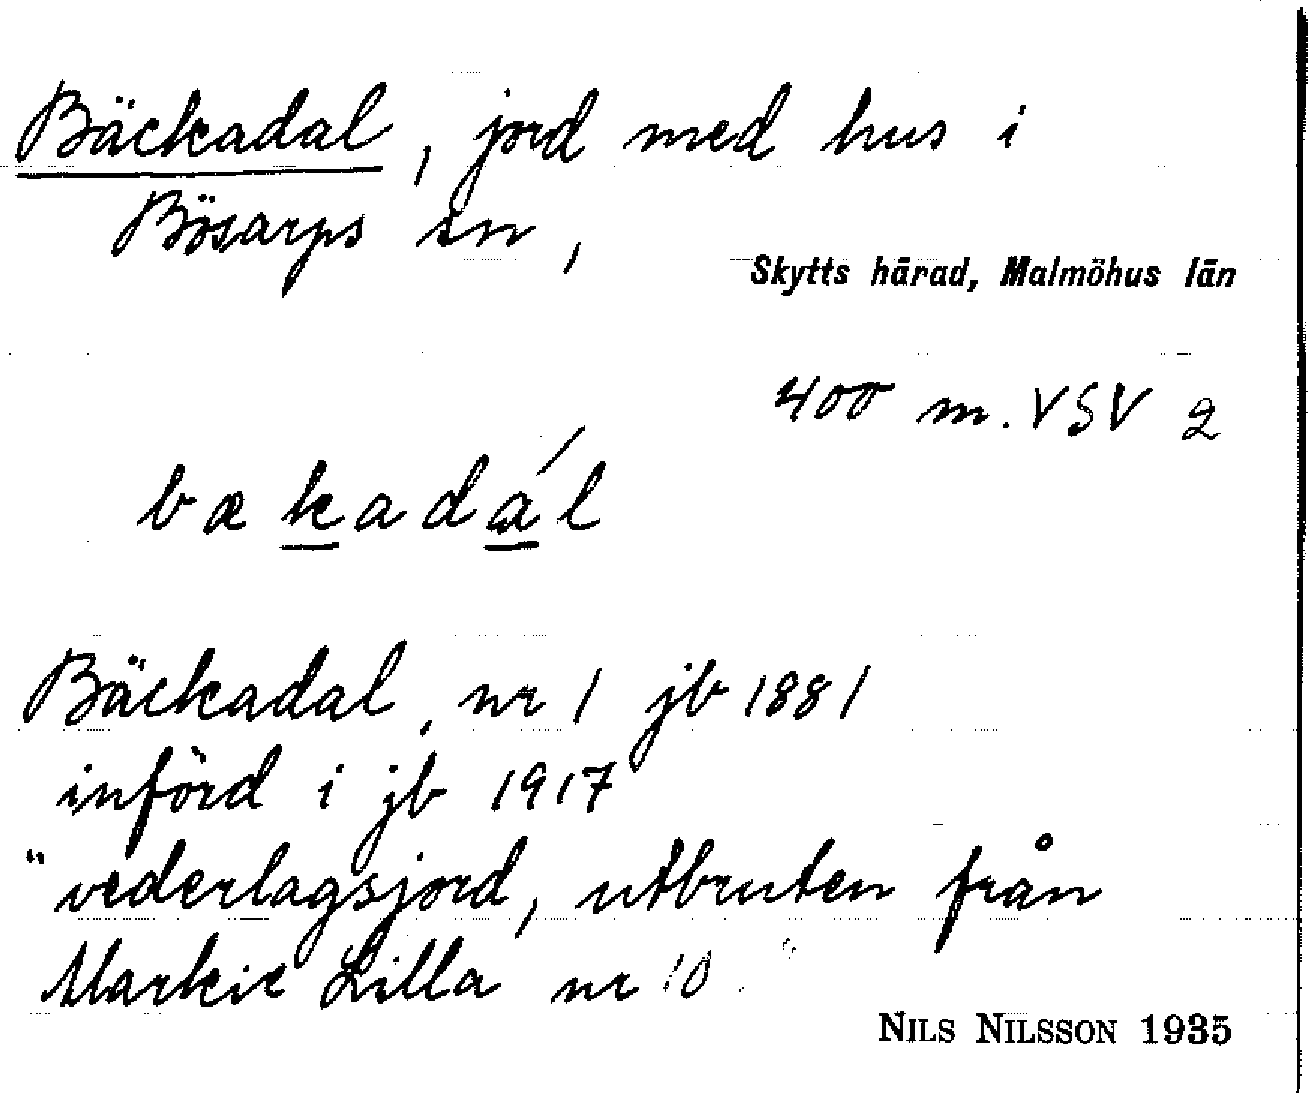 Bäckadal, jord med hus i
Bösarps sn,
Skytts härad, Malmöhus län
400 m. VSV 2
bækadál
Bäckadal, nr 1 jb 1881
införd i jb 1917
"vederlagsjord, utbruten från
Markie Lilla nr 10"
NILS NILSSON 1935